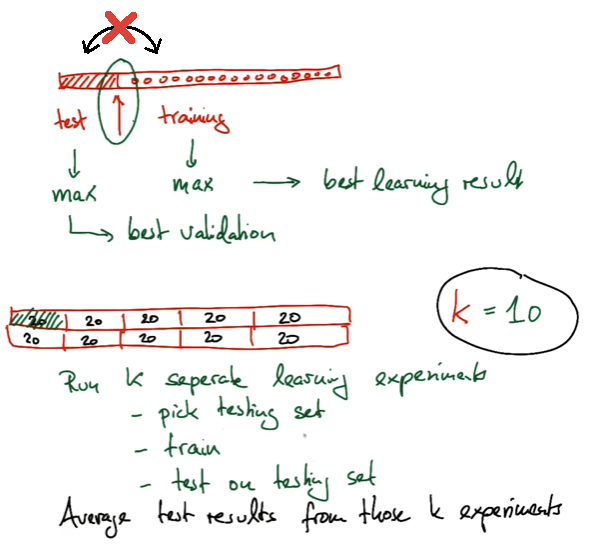 test training
max max → best learning result
best validation
20 20 20 20 20
20 20 20 20 20
k = 10
Run k seperate learning experiments
- pick testing set
- train
- test on testing set
Average test results from those k experiments